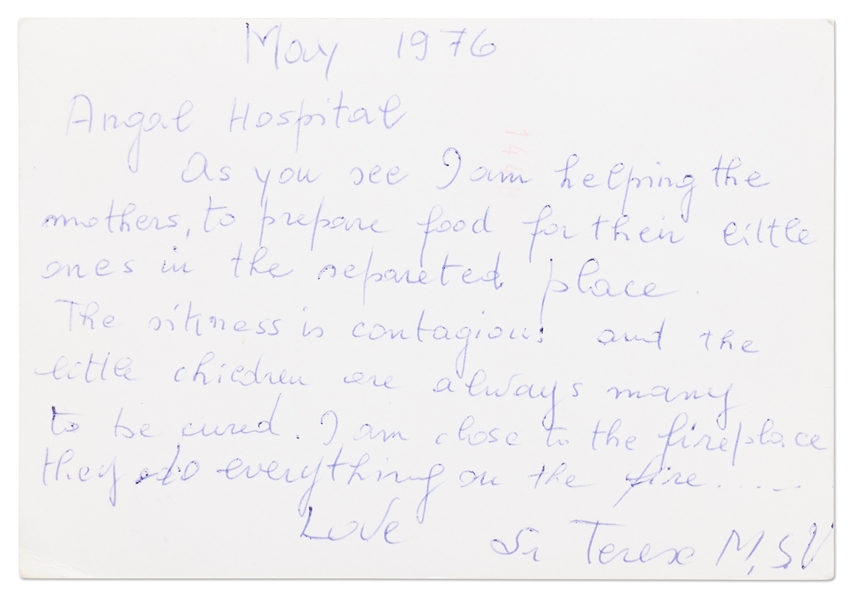 May 1976
Angal Hospital
As you see I am helping the
mothers, to prepare food for their little
ones in the separeted place.
The sikness is contagious and the
little children are always many
to be cured. I am close to the fireplace
they do everything on the fire.....
Love Sr Teresa M, SV